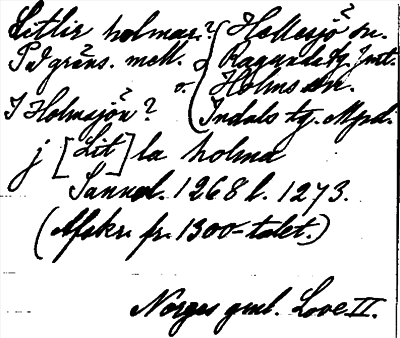 Litlir holmar? Hellesjö sn.
På gräns. mell. Ragunda tg. Jmt.
o. Holms sn.
I Holmsjön? Indals tg. Mpd.
j [Lit]la holma
Sannol. 1268 l. 1273.
(Afskr. fr. 1300-talet.)
Norges gml. Love II.